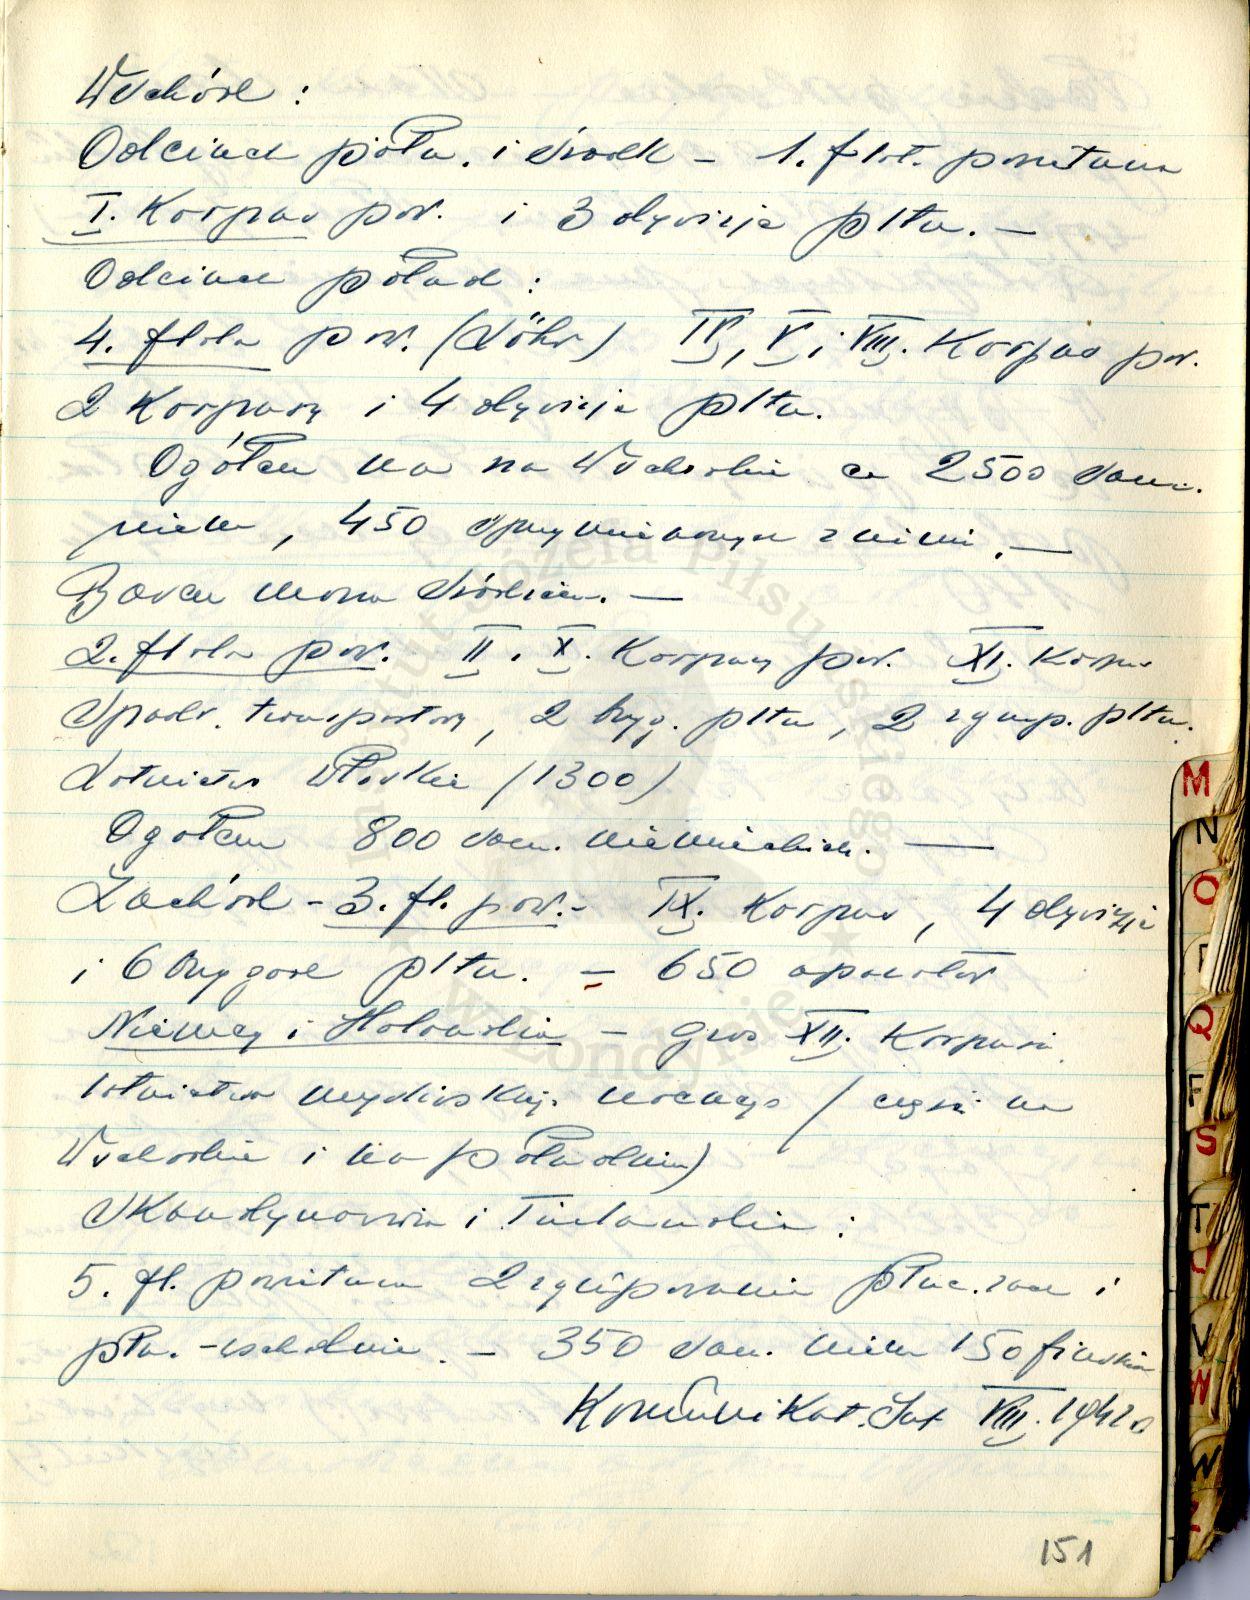 Wschód :
Odcinek półn. i środk – 1. flot. powietrzna
I. Korpus pow. i 3 dywizje pltn. –
Odcinek połud :
4. flota pow. (Löhr) IV, V i VIII. Korpus pow.
2 Korpusy i 4 dywizje pltn.
Ogółem ma na Wschodzie ca 2500 sam.
niem, 450 sprzymierzonych z nimi. –
Basen morza Śródziem. –
2. flota pow. II i X. Korpusy pow. XI. Korpus
Spado. transportowy, 2 bryg. pltn, 2 zgrup. pltn.
Lotnictwo Włoskie (1300)
Ogółem 800 sam. niemieckich. –
Zachód – 3. fl. pow. – IX. Korpus, 4 dywizje
i 6 brygad pltn. – 650 aparatów
Niemcy i Holandia – gros XII. Korpusu
lotnictwa myśliwskiego nocnego (część na
Wschodzie i na południu)
Skandynawia i Finlandia :
5. fl. powietrzna 2 zgrupowania płnc. zach i
płn. – wschodnie. – 350 sam. niem 150 fińskich
Komunikat. VIII. 1942
151
M
N
O
P
Q
F
S
T
U
V
W
W
Z
Instytut Józefa Piłsudskiego
w Londynie